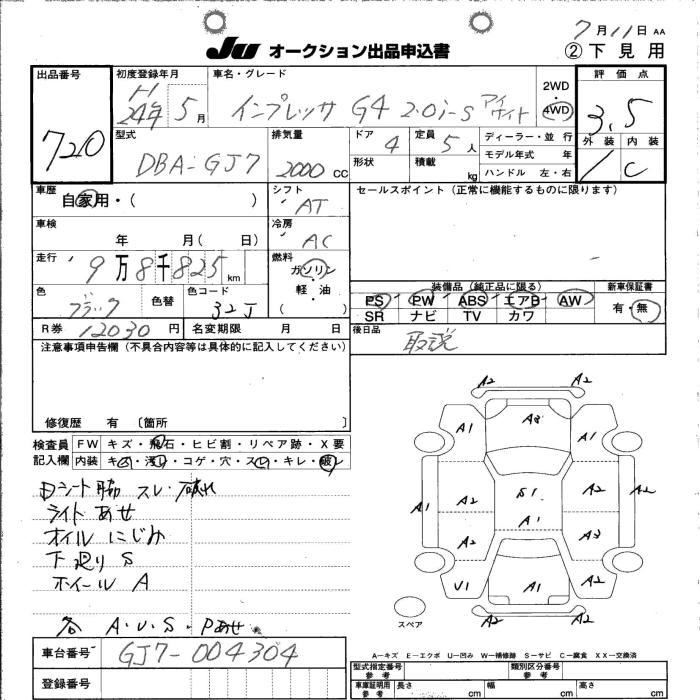 7月11日 AA
JU オークション出品申込書 ②下見用
出品番号 初度登録年月 車名・グレード 2WD 評価点
720 H24年 5月 インプレッサ G4 2.0i-S アイサイト 4WD 3.5
型式 排気量 ドア 定員 ディーラー・並行 外装 内装
DBA-GJ7 2000cc 4 5人 モデル年式 年 C
形状 積載 kg ハンドル 左・右
車歴 シフト セールスポイント(正常に機能するものに限ります)
自家用・( ) AT
車検 冷房
年 月( 日) AC
走行 燃料
9万8千825km ガソリン
色 色替 色コード 軽・油
ブラック 32J ( )
装備品(純正品に限る) 新車保証書
PS PW ABS エアB AW 有・無
SR ナビ TV カワ
R券 12030円 名変期限 月 日 後日品
取説
注意事項申告欄(不具合内容等は具体的に記入してください)
修復歴 有〔箇所 〕
検査員 FW キズ・飛石・ヒビ割・リペア跡・X要
記入欄 内装 キズ・汚れ・コゲ・穴・スレ・キレ・破レ
スレ・破れ
ライトあせ
オイルにじみ
下廻りS
ホイールA
各 A・U・S・Pあせ
A2 A2
A1 A3 A1
A1 A2 S1 A2 A2
A1
A2 A3
U1 A1 A2
A2 A2
スペア
A-キズ E-エクボ U-凹み W-補修跡 S-サビ C-腐食 XX-交換済
車台番号 GJ7-004304
登録番号
型式指定番号 参考 類別区分番号 参考
車庫証明用 参考 長さ cm 幅 cm 高さ cm